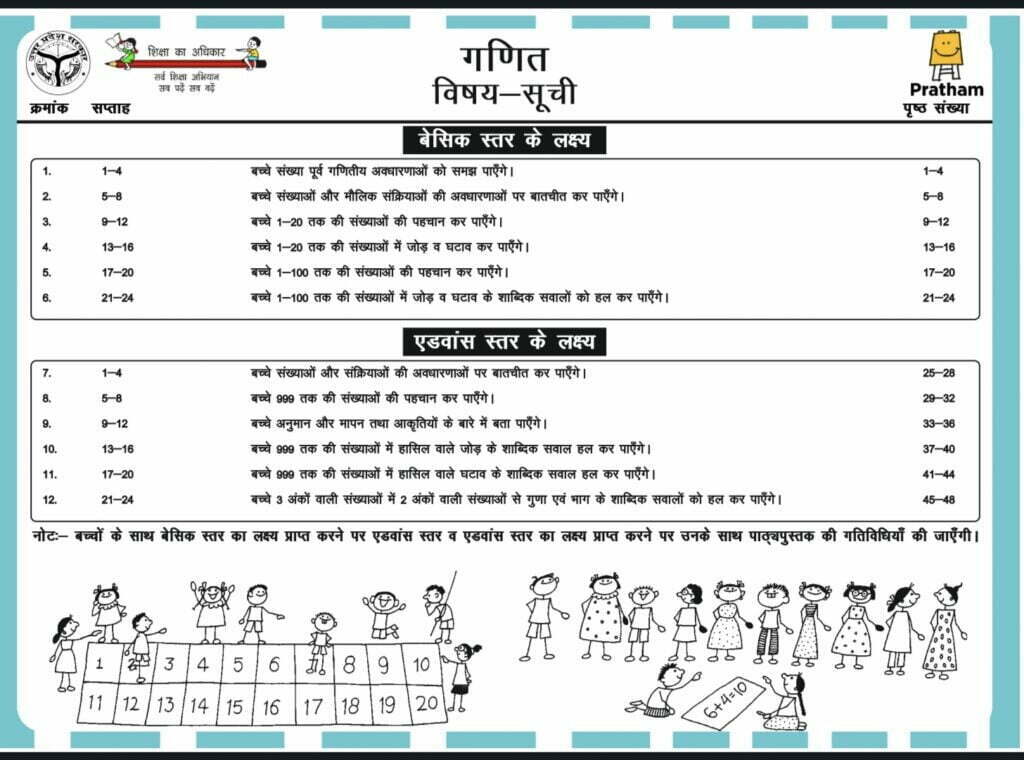 उत्तर प्रदेश सरकार
शिक्षा का अधिकार
सर्व शिक्षा अभियान
सब पढ़ें सब बढ़ें
गणित
विषय–सूची
Pratham
क्रमांक सप्ताह पृष्ठ संख्या
बेसिक स्तर के लक्ष्य
1. 1–4 बच्चे संख्या पूर्व गणितीय अवधारणाओं को समझ पाएँगे। 1–4
2. 5–8 बच्चे संख्याओं और मौलिक संक्रियाओं की अवधारणाओं पर बातचीत कर पाएँगे। 5–8
3. 9–12 बच्चे 1–20 तक की संख्याओं की पहचान कर पाएँगे। 9–12
4. 13–16 बच्चे 1–20 तक की संख्याओं में जोड़ व घटाव कर पाएँगे। 13–16
5. 17–20 बच्चे 1–100 तक की संख्याओं की पहचान कर पाएँगे। 17–20
6. 21–24 बच्चे 1–100 तक की संख्याओं में जोड़ व घटाव के शाब्दिक सवालों को हल कर पाएँगे। 21–24
एडवांस स्तर के लक्ष्य
7. 1–4 बच्चे संख्याओं और संक्रियाओं की अवधारणाओं पर बातचीत कर पाएँगे। 25–28
8. 5–8 बच्चे 999 तक की संख्याओं की पहचान कर पाएँगे। 29–32
9. 9–12 बच्चे अनुमान और मापन तथा आकृतियों के बारे में बता पाएँगे। 33–36
10. 13–16 बच्चे 999 तक की संख्याओं में हासिल वाले जोड़ के शाब्दिक सवाल हल कर पाएँगे। 37–40
11. 17–20 बच्चे 999 तक की संख्याओं में हासिल वाले घटाव के शाब्दिक सवाल हल कर पाएँगे। 41–44
12. 21–24 बच्चे 3 अंकों वाली संख्याओं में 2 अंकों वाली संख्याओं से गुणा एवं भाग के शाब्दिक सवालों को हल कर पाएँगे। 45–48
नोटः– बच्चों के साथ बेसिक स्तर का लक्ष्य प्राप्त करने पर एडवांस स्तर व एडवांस स्तर का लक्ष्य प्राप्त करने पर उनके साथ पाठ्यपुस्तक की गतिविधियाँ की जाएँगी।
1 2 3 4 5 6 8 9 10
11 12 13 14 15 16 17 18 19 20
6+4=10